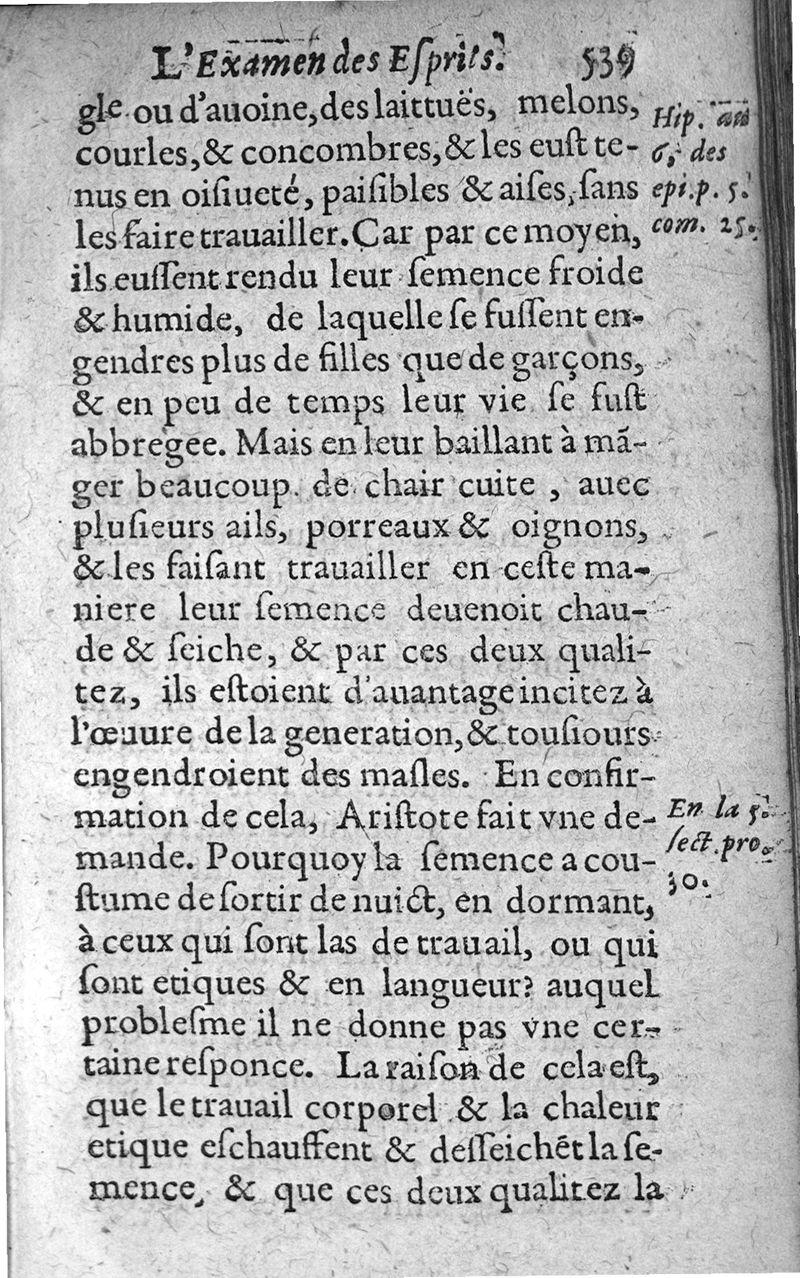 L'Examen des Eſprits. 539
gle ou d'auoine, des laittuës, melons,
courles, & concombres, & les euſt te-
nus en oiſiueté, paiſibles & aiſes, ſans
les faire trauailler. Car par ce moyen,
ils euſſent rendu leur ſemence froide
& humide, de laquelle ſe fuſſent en-
gendres plus de filles que de garçons,
& en peu de temps leur vie ſe fuſt
abbregee. Mais en leur baillant à mã-
ger beaucoup de chair cuite, auec
pluſieurs ails, porreaux & oignons,
& les faiſant trauailler en ceſte ma-
niere leur ſemence deuenoit chau-
de & ſeiche, & par ces deux quali-
tez, ils eſtoient d'auantage incitez à
l'œuure de la generation, & touſiours
engendroient des maſles. En confir-
mation de cela, Ariſtote fait vne de-
mande. Pourquoy la ſemence a cou-
ſtume de ſortir de nuict, en dormant,
à ceux qui ſont las de trauail, ou qui
ſont etiques & en langueur? auquel
probleſme il ne donne pas vne cer-
taine reſponce. La raiſon de cela eſt,
que le trauail corporel & la chaleur
etique eſchauffent & deſſeichẽt la ſe-
mence, & que ces deux qualitez la
Hip. au
6. des
epi. p. 5.
com. 25.
En la 5.
ſect. pro.
30.